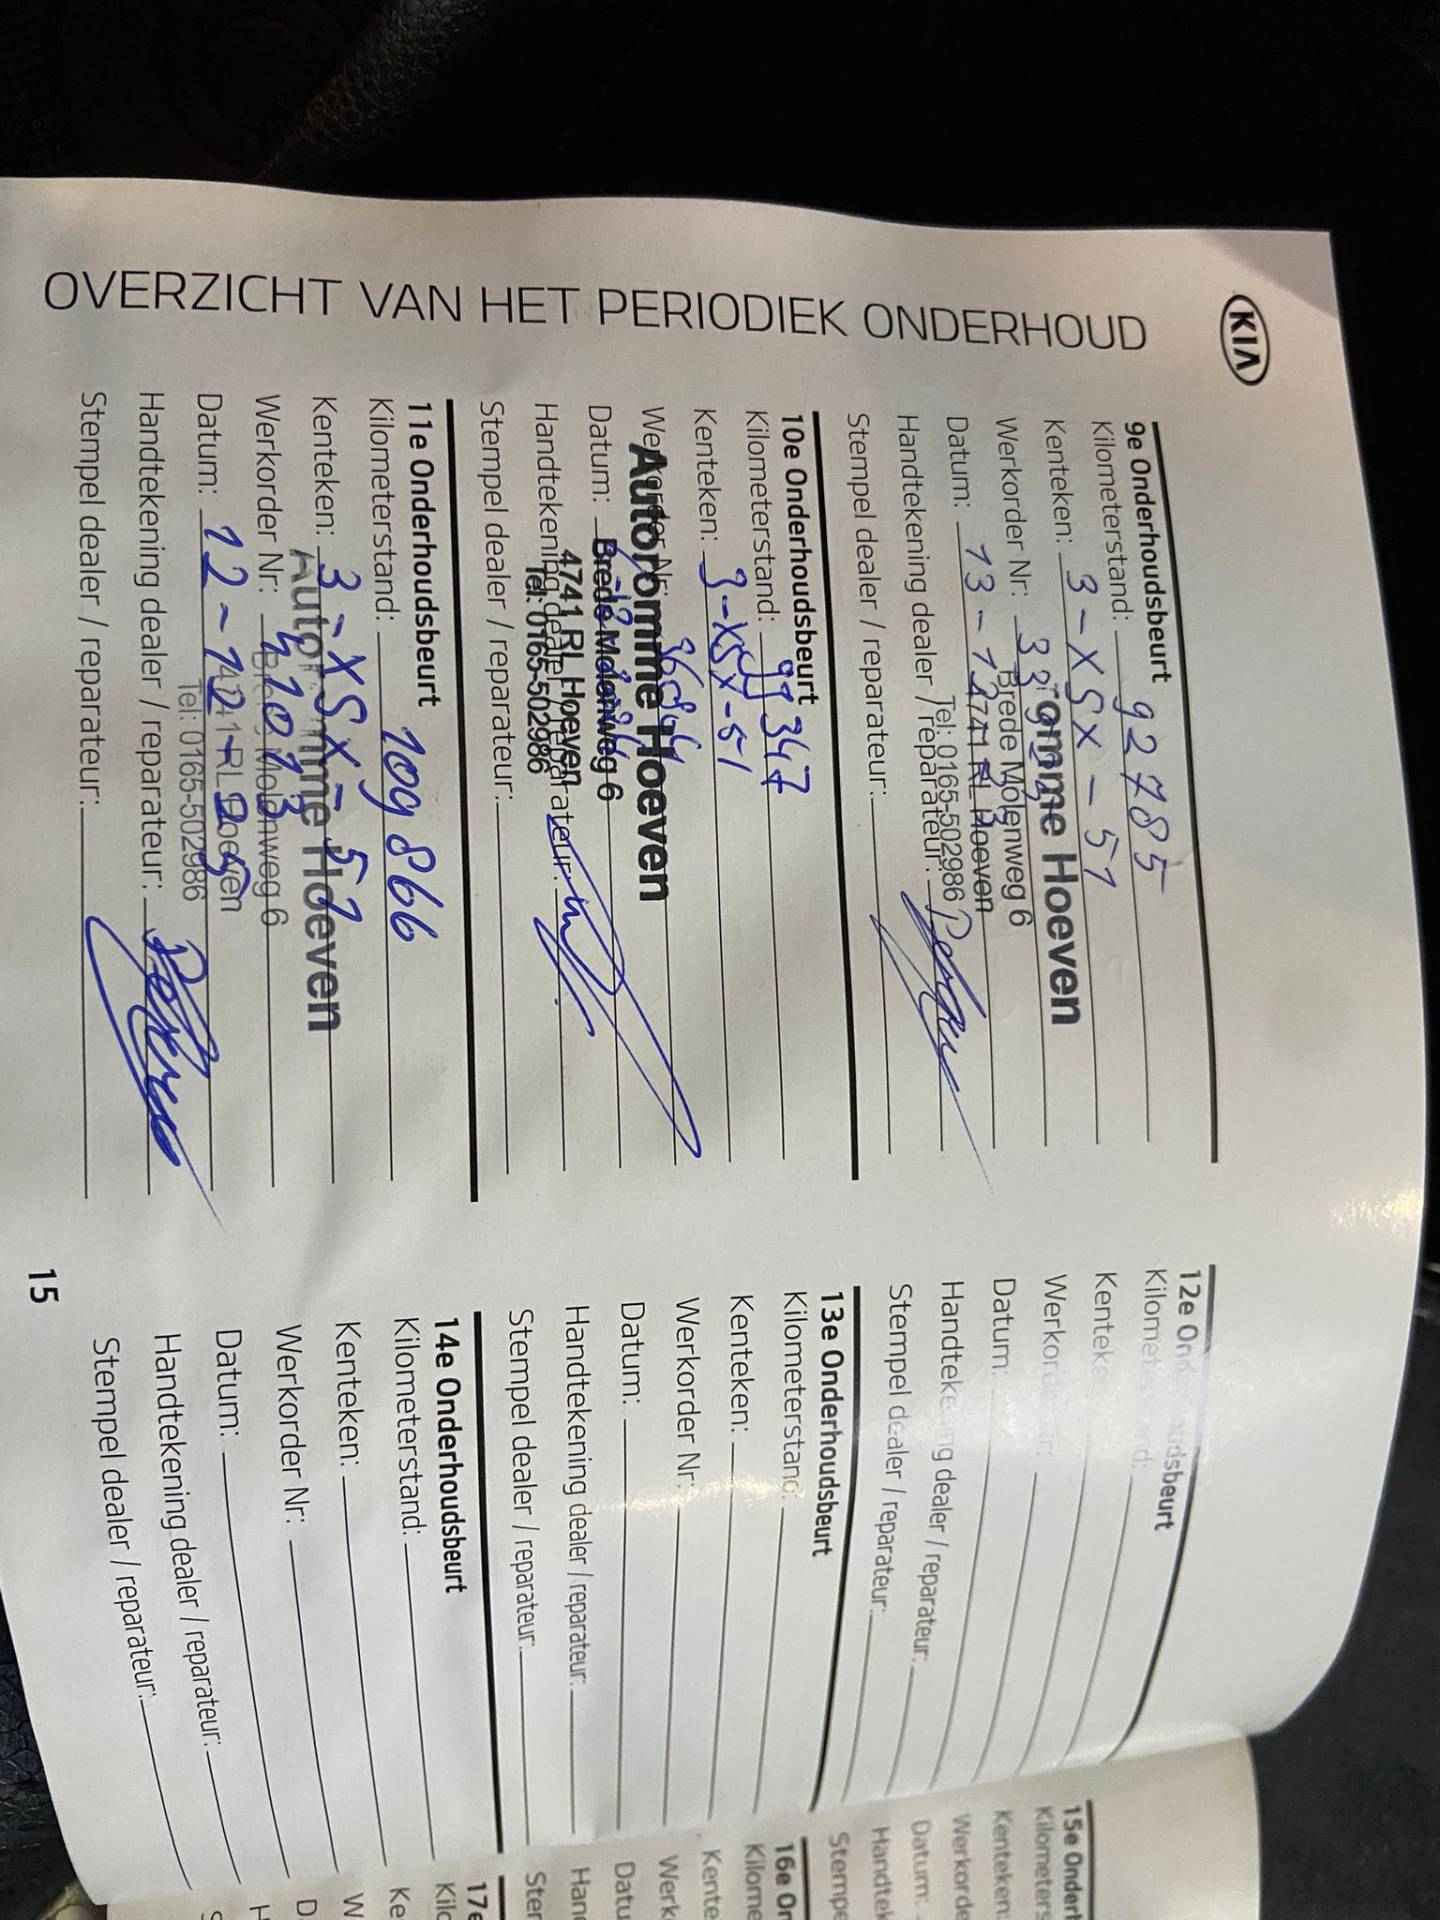 KIA
OVERZICHT VAN HET PERIODIEK ONDERHOUD
9e Onderhoudsbeurt
Kilometerstand: 92785
Kenteken: 3-XSX-51
Werkorder Nr:
Datum: 13-12-
Handtekening dealer / reparateur:
Stempel dealer / reparateur:
omme Hoeven
Brede Molenweg 6
4741 RL Hoeven
Tel: 0165-502986
10e Onderhoudsbeurt
Kilometerstand: 99347
Kenteken: 3-XSX-51
Werkorder Nr:
Datum:
Handtekening dealer / reparateur:
Stempel dealer / reparateur:
Automme Hoeven
Brede Molenweg 6
4741 RL Hoeven
Tel: 0165-502986
11e Onderhoudsbeurt
Kilometerstand: 109866
Kenteken: 3-XSX-51
Werkorder Nr:
Datum: 12-12-
Handtekening dealer / reparateur:
Stempel dealer / reparateur:
Hoeven
Molenweg 6
Tel: 0165-502986
12e
Kenteke
Werkord
Datum:
dealer / reparateur:
Stempel dealer / reparateur:
13e Onderhoudsbeurt
Kilometerstand:
Kenteken:
Werkorder Nr:
Datum:
Handtekening dealer / reparateur:
Stempel dealer / reparateur:
14e Onderhoudsbeurt
Kilometerstand:
Kenteken:
Werkorder Nr:
Datum:
Handtekening dealer / reparateur:
Stempel dealer / reparateur:
15e Onderh
Kilometers
Kenteken:
Werkorde
Datum:
Handtek
Stempe
16e On
Kilome
Kente
Werk
Datu
Han
Ster
17e
Kilo
Ke
W
D
H
15